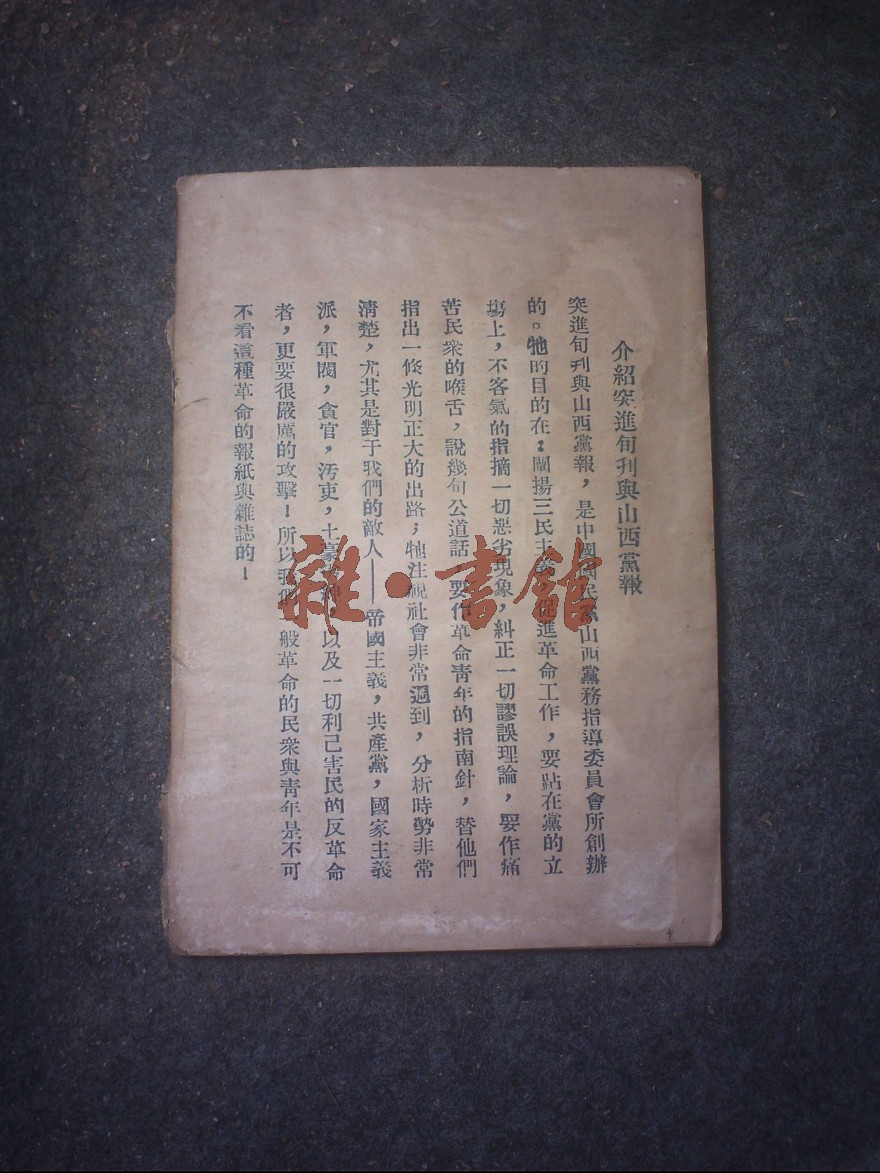 介紹突進旬刊與山西黨報
突進旬刊與山西黨報，是中國國民黨山西黨務指導委員會所創辦
的。牠的目的在：闡揚三民主義，促進革命工作，要站在黨的立
塲上，不客氣的指摘一切惡劣現象，糾正一切謬誤理論，要作痛
苦民衆的喉舌，說幾句公道話，要作革命靑年的指南針，替他們
指出一條光明正大的出路；牠注視社會非常週到，分析時勢非常
淸楚，尤其是對于我們的敵人——帝國主義，共產黨，國家主義
派，軍閥，貪官，汚吏，土豪 以及一切利己害民的反革命
者，更要很嚴厲的攻擊！所以我們一般革命的民衆與靑年是不可
不看這種革命的報紙與雜誌的！
雜·書館